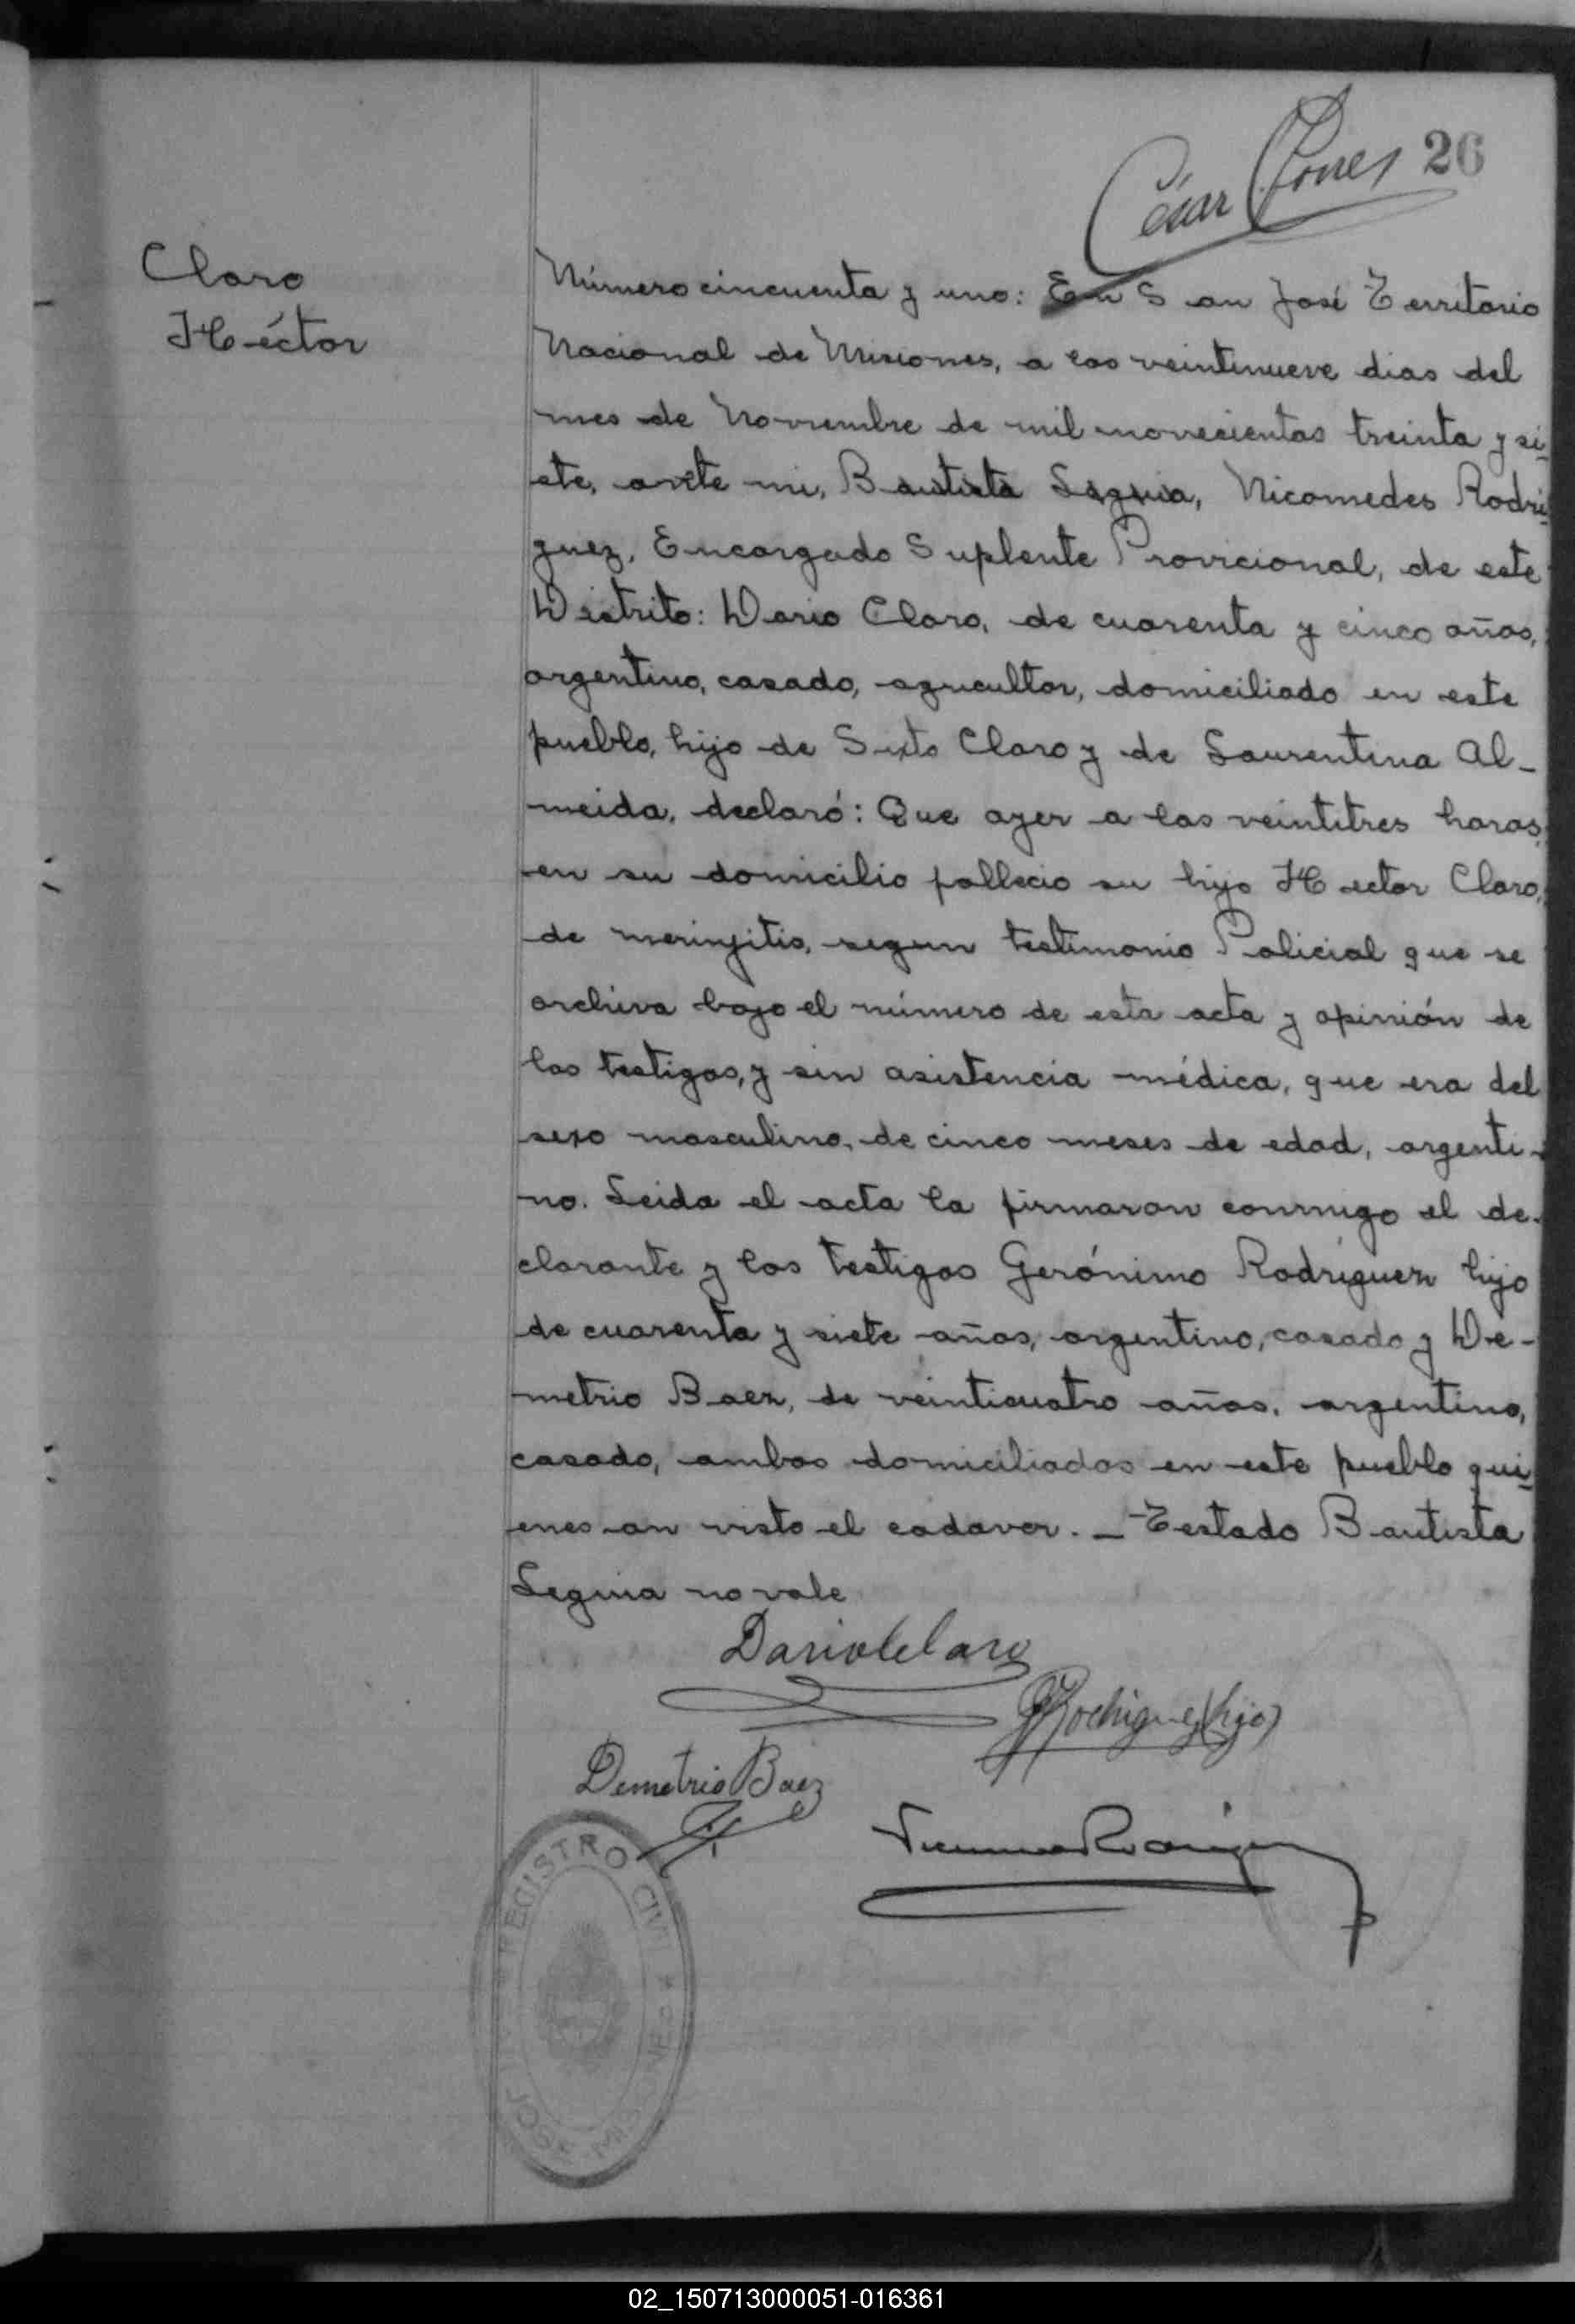 César Jones 26
Claro
Héctor
Número cincuenta y uno: En San José Territorio
Nacional de Misiones, a los veintinueve dias del
mes de Noviembre de mil novecientos treinta y si-
ete, ante mi, Bautista Seguia, Nicomedes Rodri-
guez, Encargado Suplente Provicional, de este
Distrito: Dario Claro, de cuarenta y cinco años,
argentino, casado, agricultor, domiciliado en este
pueblo, hijo de Sixto Claro y de Laurentina Al-
meida, declaró: Que ayer a las veintitres horas,
en su domicilio fallecio su hijo Hector Claro,
de meningitis, segun testimonio Policial que se
archiva bajo el número de esta acta y opinión de
los testigos, y sin asistencia médica, que era del
sexo masculino, de cinco meses de edad, argenti-
no. Leida el acta la firmaron conmigo el de-
clarante y los testigos Gerónimo Rodriguez hijo
de cuarenta y siete años, argentino, casado y De-
metrio Baez, de veinticuatro años, argentino,
casado, ambos domiciliados en este pueblo qui-
enes an visto el cadaver. _ Testado Bautista
no vale
Dario Claro
GRodriguez (hijo)
Demetrio Baez
REGISTRO CIVIL
JOSE MISIONES
02_150713000051-016361